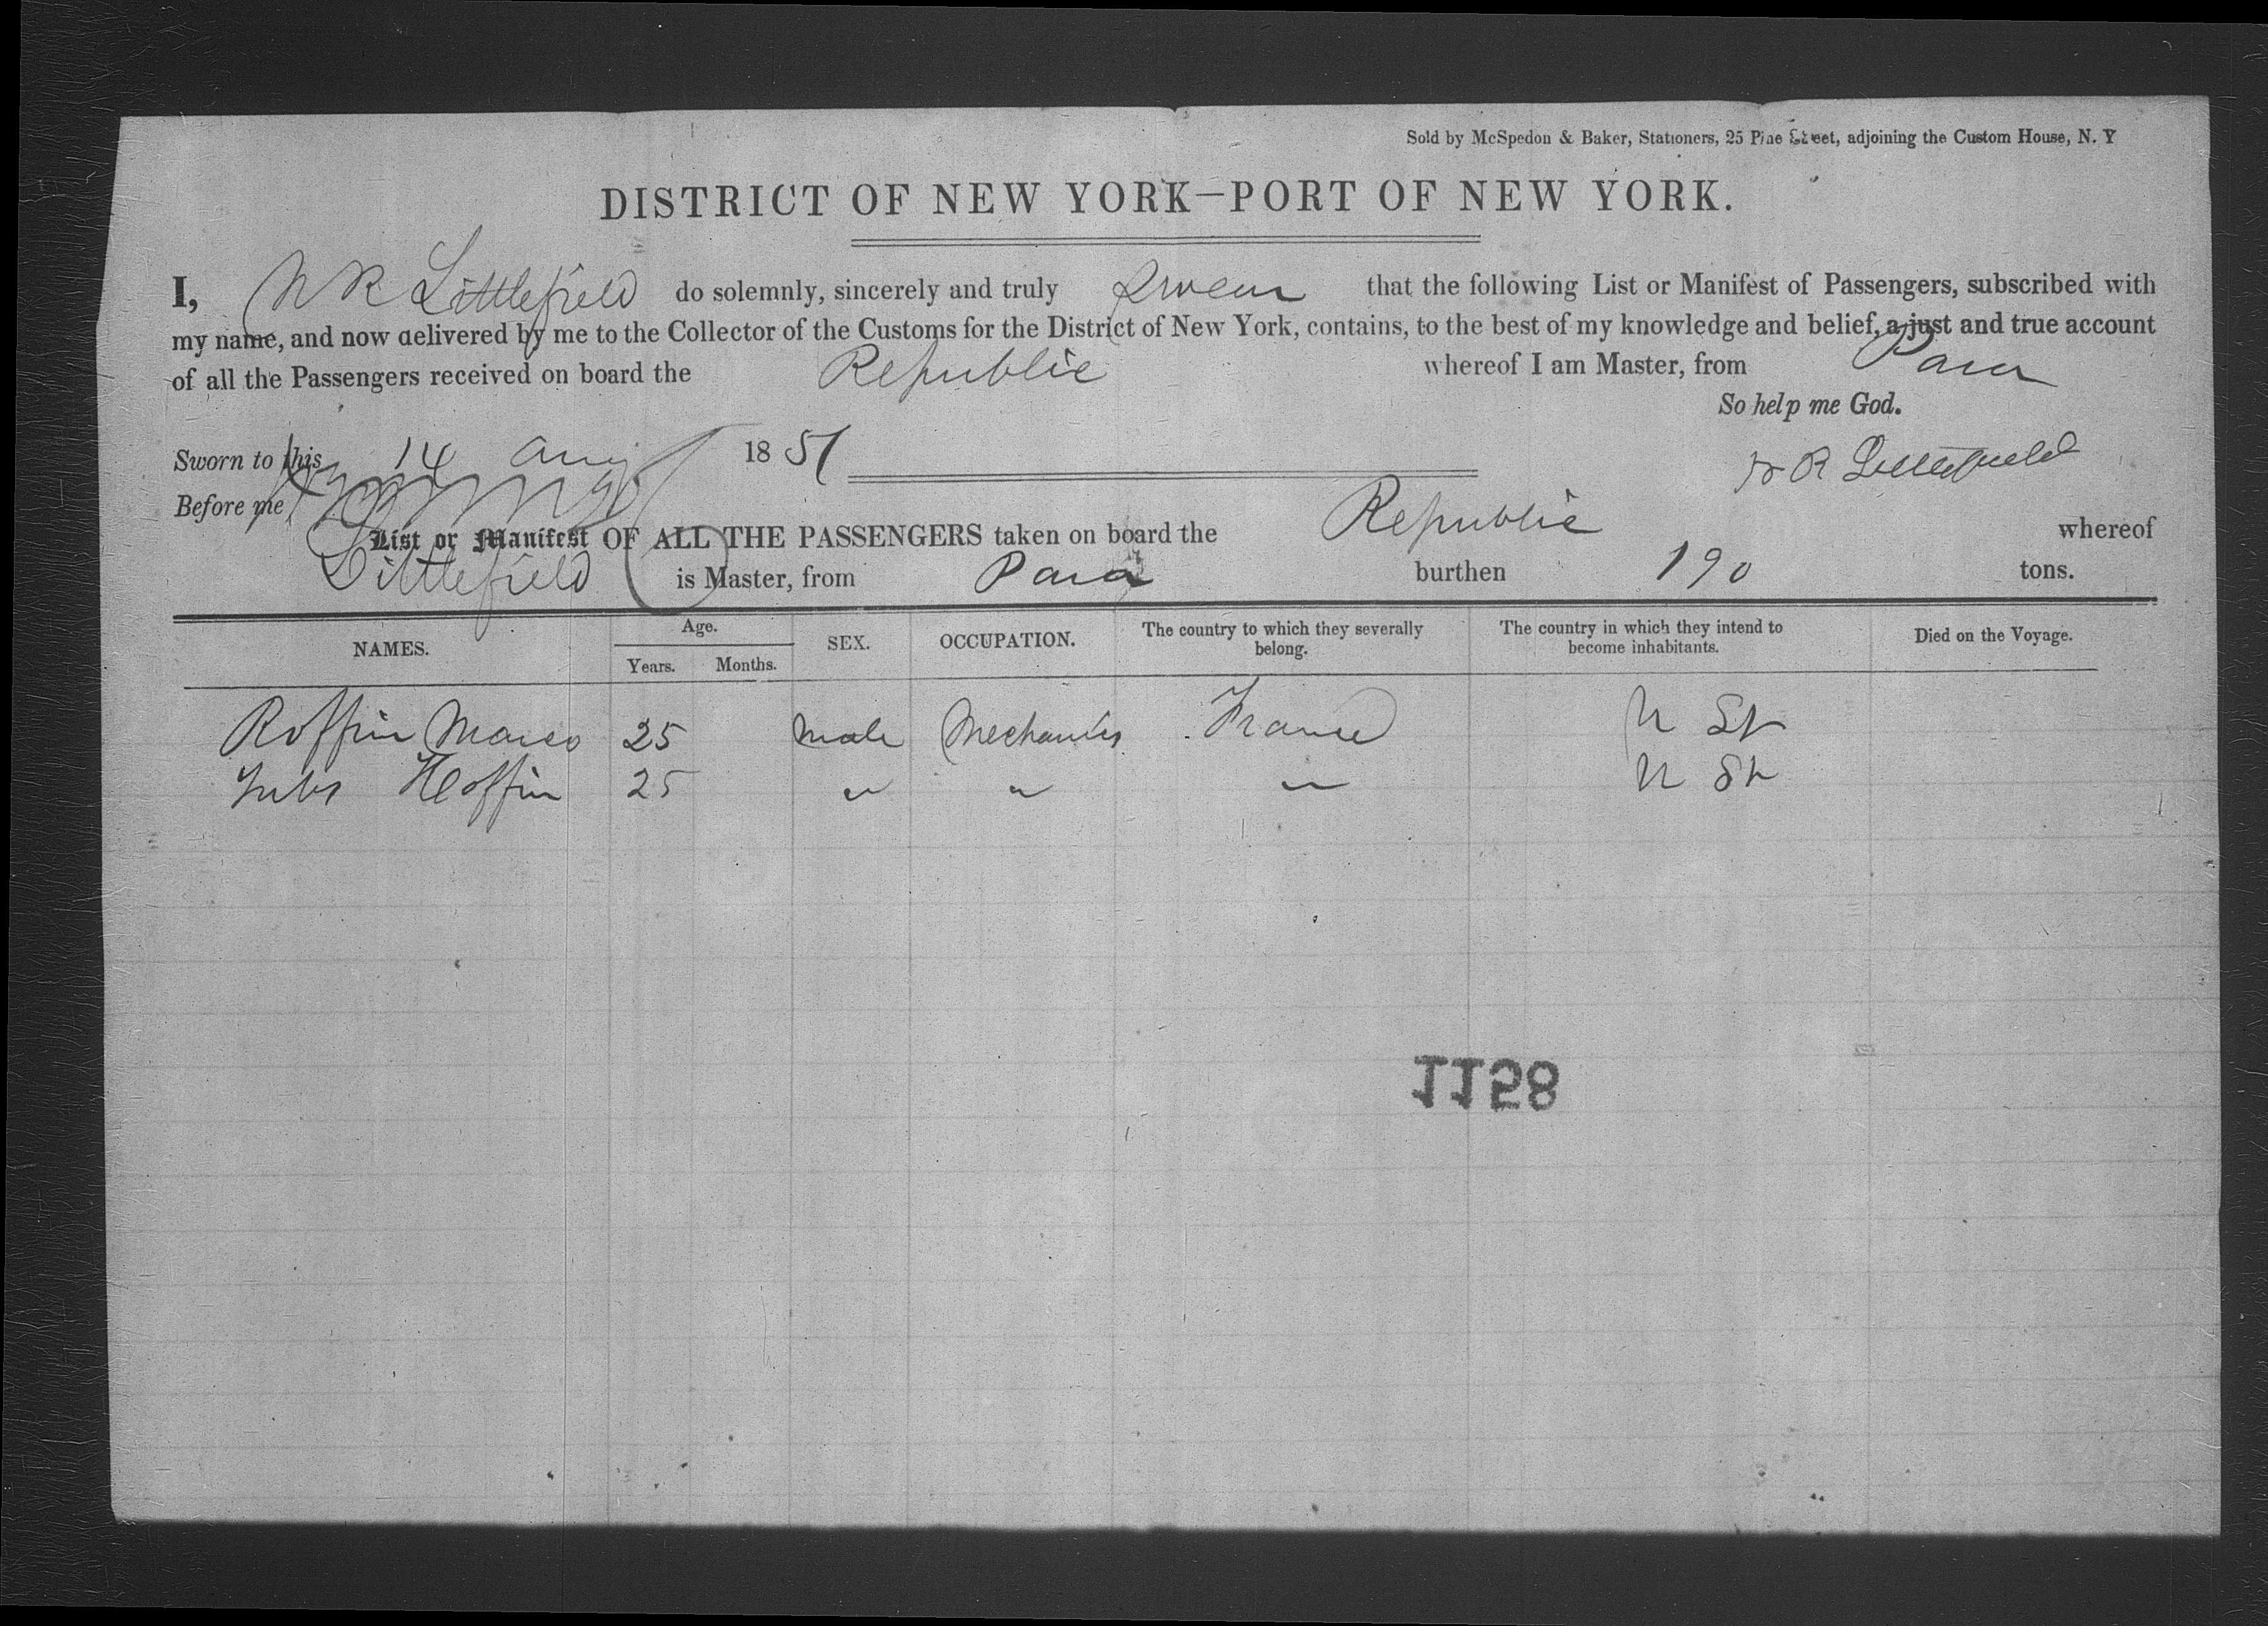 Sold by McSpedon & Baker, Stationers, 25 Pine Street, adjoining the Custom House, N. Y
DISTRICT OF NEW YORK—PORT OF NEW YORK.
I, N R Littlefield do solemnly, sincerely and truly Swear that the following List or Manifest of Passengers, subscribed with
my name, and now delivered by me to the Collector of the Customs for the District of New York, contains, to the best of my knowledge and belief, a just and true account
of all the Passengers received on board the Republic whereof I am Master, from Para
So help me God.
Sworn to this 14 Aug 1851
N R Littlefield
Before me
List or Manifest OF ALL THE PASSENGERS taken on board the Republic whereof
Littlefield is Master, from Para burthen 190 tons.
NAMES. Age. Years. Months. SEX. OCCUPATION. The country to which they severally belong. The country in which they intend to become inhabitants. Died on the Voyage.
Roffin 25 male Mechanics France U St
Hoffin 25 " " " U St
1158